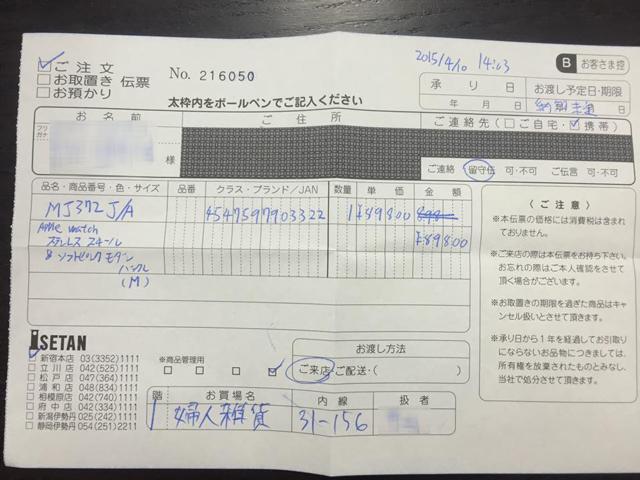 ご注文
お取置き 伝票
お預かり
No. 216050
2015/4/10 14:03
B お客さま控
太枠内をボールペンでご記入ください
承り日 お渡し予定日・期限
年 月 日 納期未定 年 月 日
フリガナ お名前 ご住所
様
ご連絡先(□ご自宅・携帯)
ご連絡 留守伝 可・不可 ご伝言 可・不可
品名・商品番号・色・サイズ 品番 クラス・ブランド/JAN 数量 単価 金額
MJ372J/A 4547597903322 1 ¥89800
Apple Watch ¥89800
ステンレススチール
& ソフトピンクモダン
バックル
(M)
〈ご注意〉
※本伝票の価格には消費税は含まれておりません。
※ご来店の際は本伝票をお持ち下さい。
お忘れの際はご本人確認をさせて
頂く場合がございます。
※お取置きの期限を過ぎた商品はキャ
ンセル扱いとさせて頂きます。
※承り日から1年を経過してもお引取り
にならないお品物につきましては、
所有権を放棄されたものとみなし、
当社で処分させて頂きます。
ISETAN
新宿本店 03(3352)1111
立川店 042(525)1111
松戸店 047(364)1111
浦和店 048(834)1111
相模原店 042(740)1111
府中店 042(334)1111
新潟伊勢丹 025(242)1111
静岡伊勢丹 054(251)2211
※商品管理用
お渡し方法
ご来店 ご配送・( )
階 お買場名 内線 扱者
1 婦人雑貨 31-156